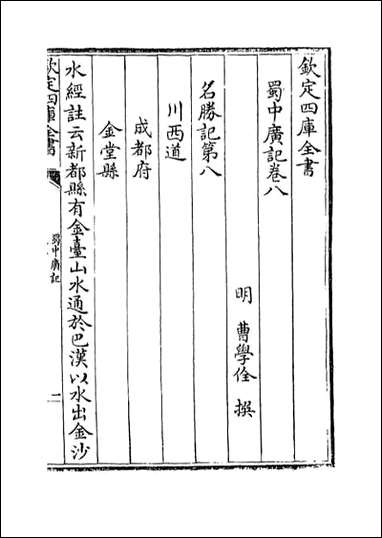 欽定四庫全書
蜀中廣記卷八
明 曹學佺 撰
名勝記第八
川西道
成都府
金堂縣
水經註云新都縣有金臺山水通於巴漢以水出金沙
欽定四庫全書
蜀中廣記